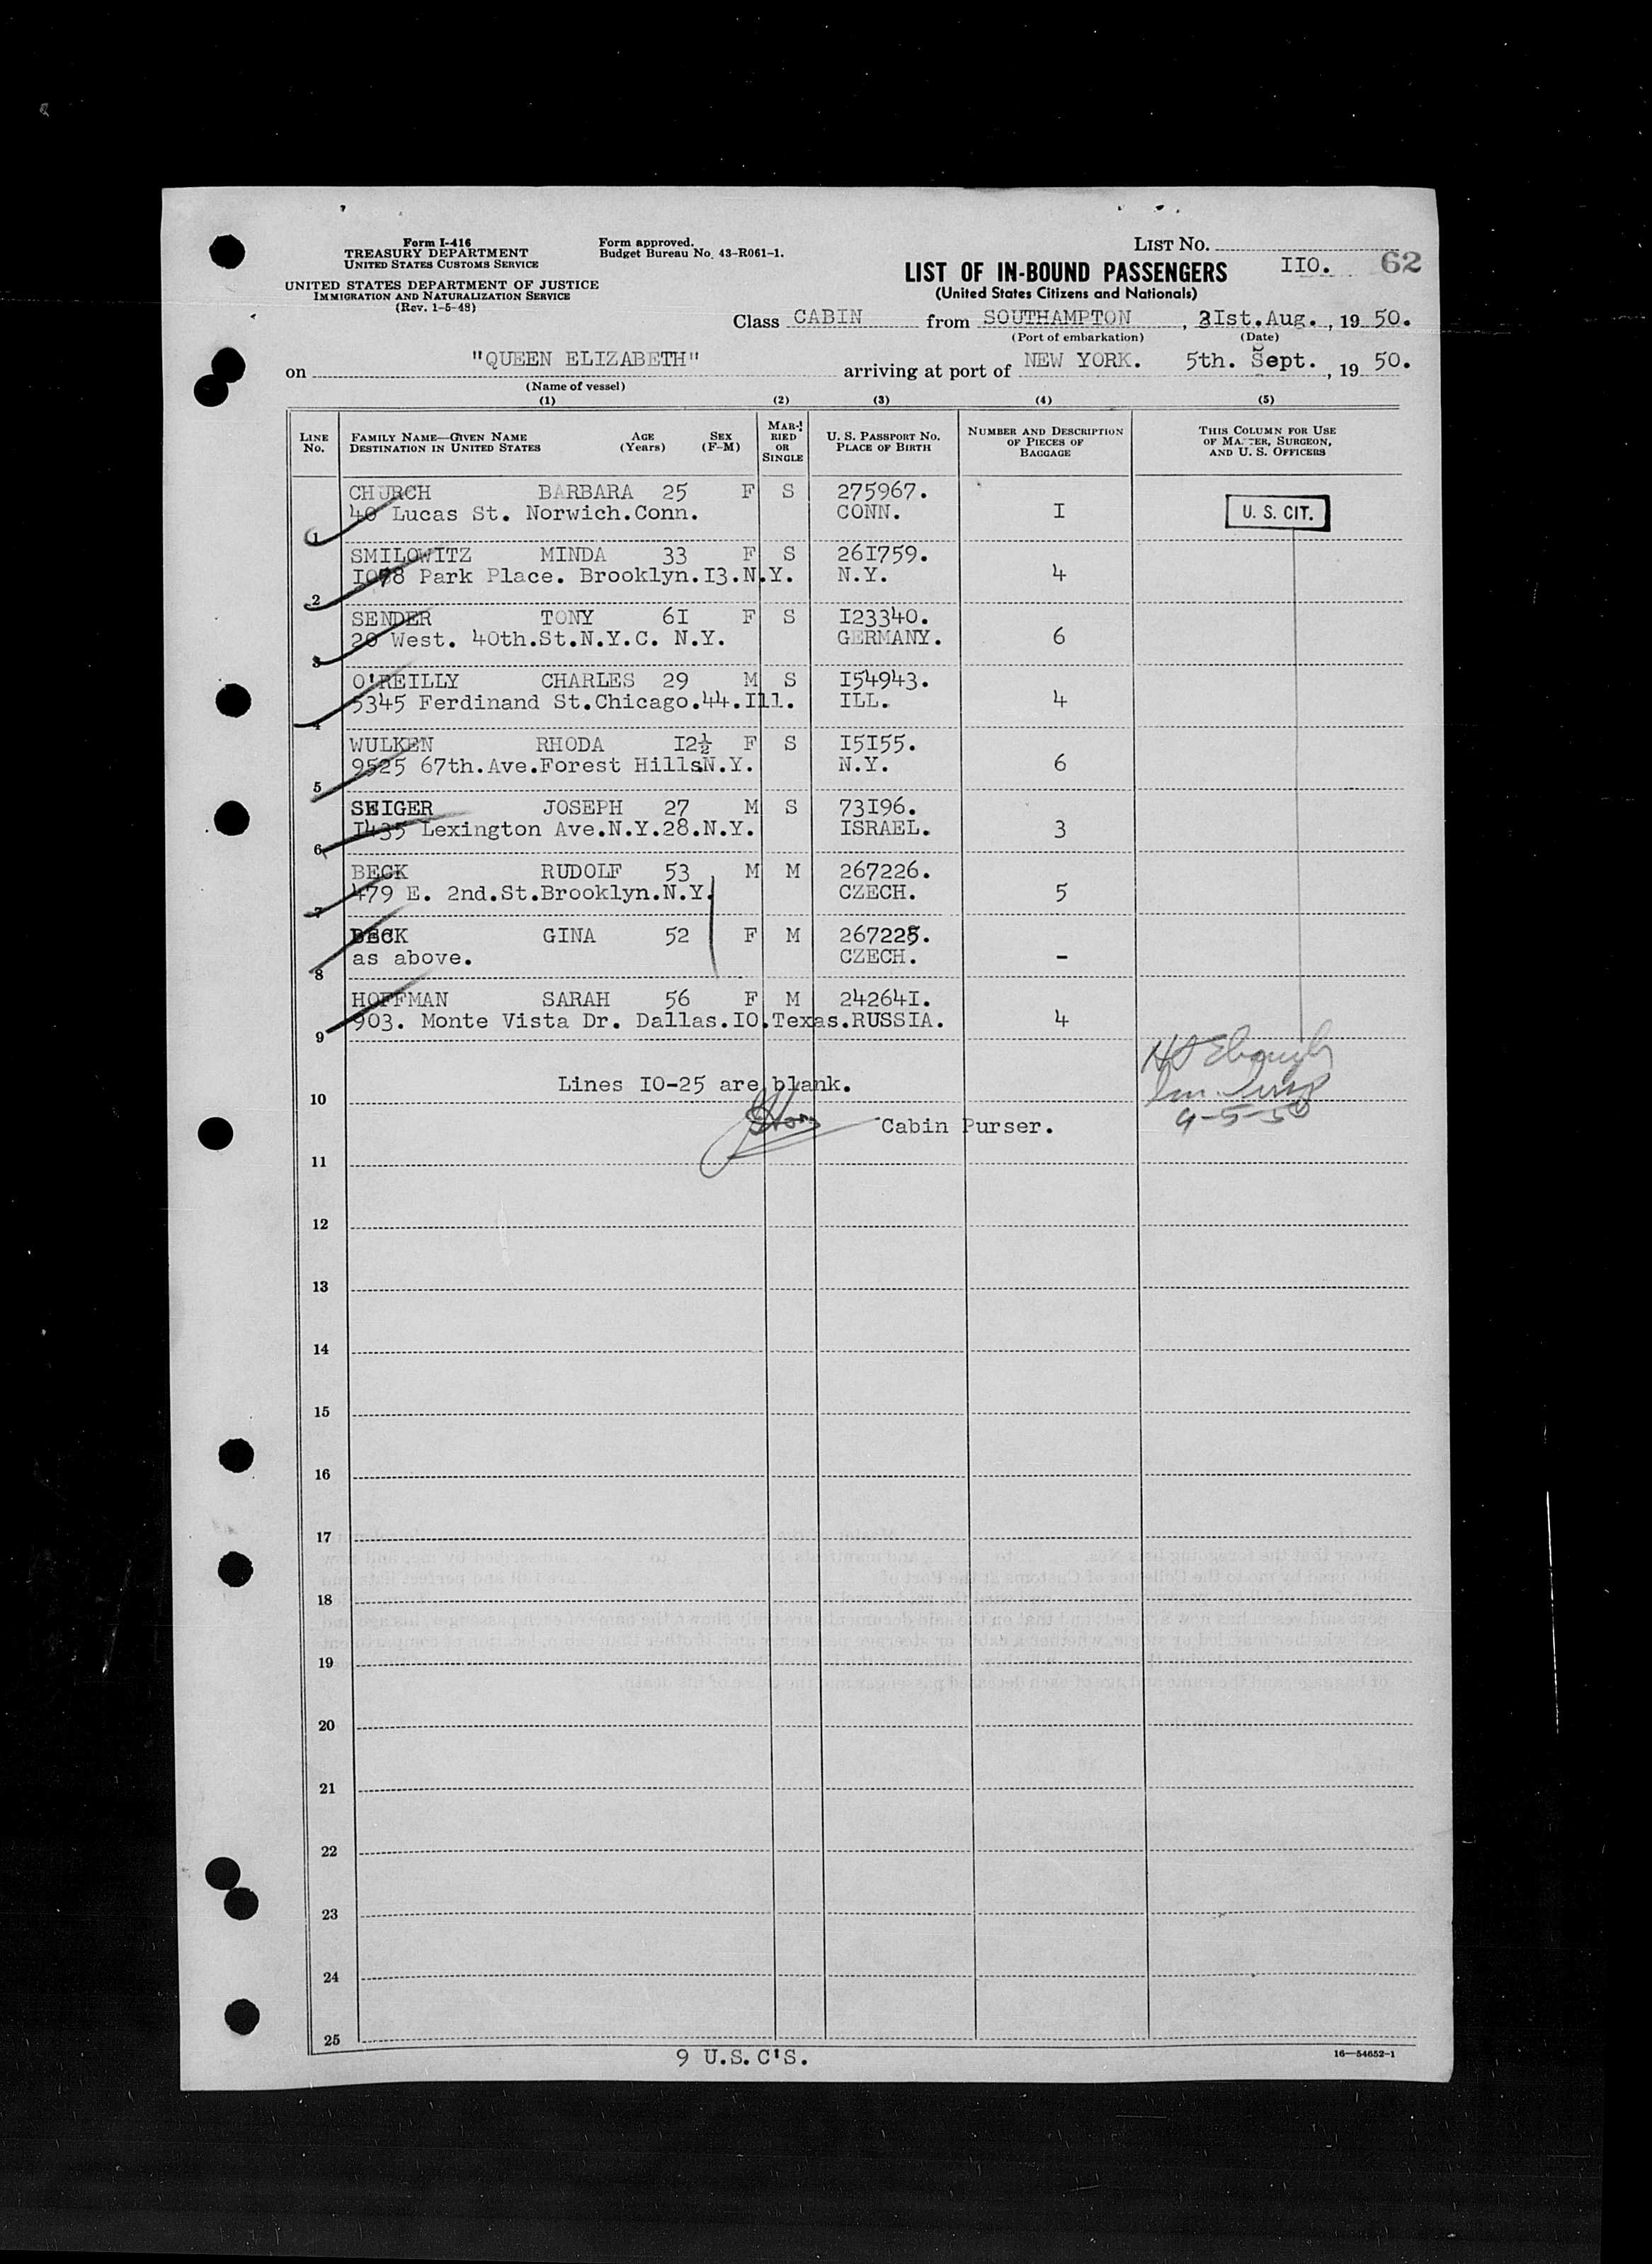 Form I-416
TREASURY DEPARTMENT
UNITED STATES CUSTOMS SERVICE
UNITED STATES DEPARTMENT OF JUSTICE
IMMIGRATION AND NATURALIZATION SERVICE
(Rev. 1-5-48)
Form approved.
Budget Bureau No. 43-R061-1.
LIST NO.
IIO. 62
LIST OF IN-BOUND PASSENGERS
(United States Citizens and Nationals)
Class CABIN from SOUTHAMPTON, 3Ist.Aug., 19 50.
(Port of embarkation) (Date)
on "QUEEN ELIZABETH" arriving at port of NEW YORK. 5th. Sept., 19 50.
(Name of vessel)
(1) (2) (3) (4) (5)
LINE No. FAMILY NAME—GIVEN NAME DESTINATION IN UNITED STATES AGE (Years) SEX (F-M) MARRIED OR SINGLE U. S. PASSPORT NO. PLACE OF BIRTH NUMBER AND DESCRIPTION OF PIECES OF BAGGAGE THIS COLUMN FOR USE OF MASTER, SURGEON, AND U. S. OFFICERS
CHURCH BARBARA 25 F S 275967.
1 40 Lucas St. Norwich.Conn. CONN. I U. S. CIT.
SMILOWITZ MINDA 33 F S 26I759.
2 I078 Park Place. Brooklyn.I3.N.Y. N.Y. 4
SENDER TONY 6I F S I23340.
3 20 West. 40th.St.N.Y.C. N.Y. GERMANY. 6
O'REILLY CHARLES 29 M S I54943.
4 5345 Ferdinand St.Chicago.44.Ill. ILL. 4
WULKEN RHODA I2½ F S I5I55.
5 9525 67th.Ave.Forest Hills.N.Y. N.Y. 6
SEIGER JOSEPH 27 M S 73I96.
6 I435 Lexington Ave.N.Y.28.N.Y. ISRAEL. 3
BECK RUDOLF 53 M M 267226.
7 479 E. 2nd.St.Brooklyn.N.Y. CZECH. 5
BECK GINA 52 F M 267225.
8 as above. CZECH. -
HOFFMAN SARAH 56 F M 24264I.
9 903. Monte Vista Dr. Dallas.IO.Texas. RUSSIA. 4
Lines IO-25 are blank.
10
Cabin Purser. 9-5-50
11
12
13
14
15
16
17
18
19
20
21
22
23
24
25
9 U.S.C'S.
16—54652-1